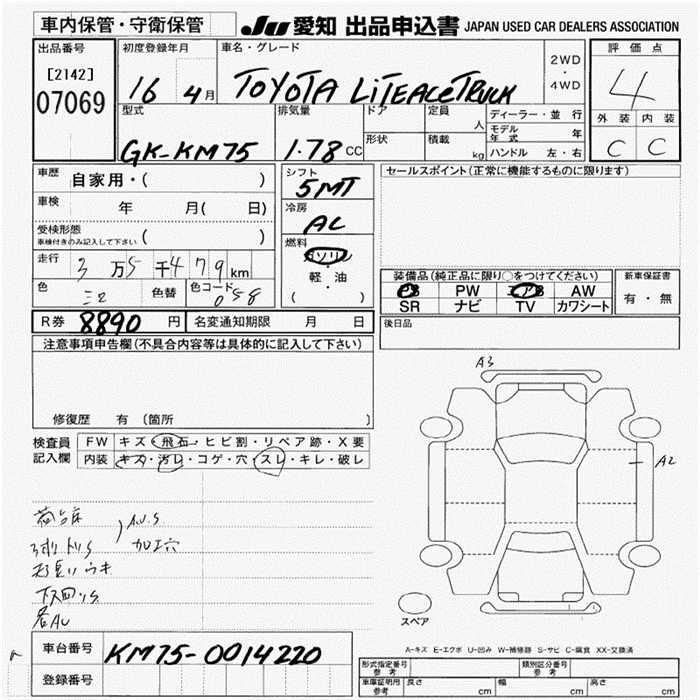 車内保管・守衛保管
JU 愛知 出品申込書 JAPAN USED CAR DEALERS ASSOCIATION
出品番号 初度登録年月 車名・グレード 2WD・4WD 評価点
[2142]
07069 16 4月 TOYOTA LITEACE TRUCK 4
型式 排気量 ドア 定員 人 ディーラー・並行 外装 内装
モデル年式 年
GK-KM75 1.78 CC 形状 積載 kg ハンドル 左・右 C C
車歴 自家用・( ) シフト 5MT セールスポイント(正常に機能するものに限ります)
車検 年 月( 日) 冷房 AC
受検形態 ( )
車検付きのみ記入して下さい
燃料 ガソリン
軽・油
( )
走行 3万5千479km
色 色替 色コード 058
装備品(純正品に限り○をつけてください) 新車保証書
PS PW AB AW 有・無
SR ナビ TV カワシート
R券 8890円 名変通知期限 月 日 後日品
注意事項申告欄(不具合内容等は具体的に記入して下さい)
修復歴 有 (箇所 )
検査員記入欄 FW キズ・飛石・ヒビ割・リペア跡・X要
内装 キズ・汚レ・コゲ・穴・スレ・キレ・破レ
A3
A2
A.U.S
加工穴
スペア
A-キズ E-エクボ U-凹み W-補修跡 S-サビ C-腐食 XX-交換済
車台番号 KM75-0014220
登録番号
形式指定番号 参考 類別区分番号 参考
車庫証明用 参考 長さ cm 幅 cm 高さ cm